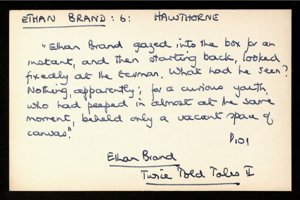 ETHAN BRAND : 6 : HAWTHORNE
"Ethan Brand gazed into the box for an
instant, and then starting back, looked
fixedly at the German. What had he seen?
Nothing, apparently; for a curious youth,
who had peeped in almost at the same
moment, beheld only a vacant space of
canvas."
P101
Ethan Brand
Twice Told Tales II